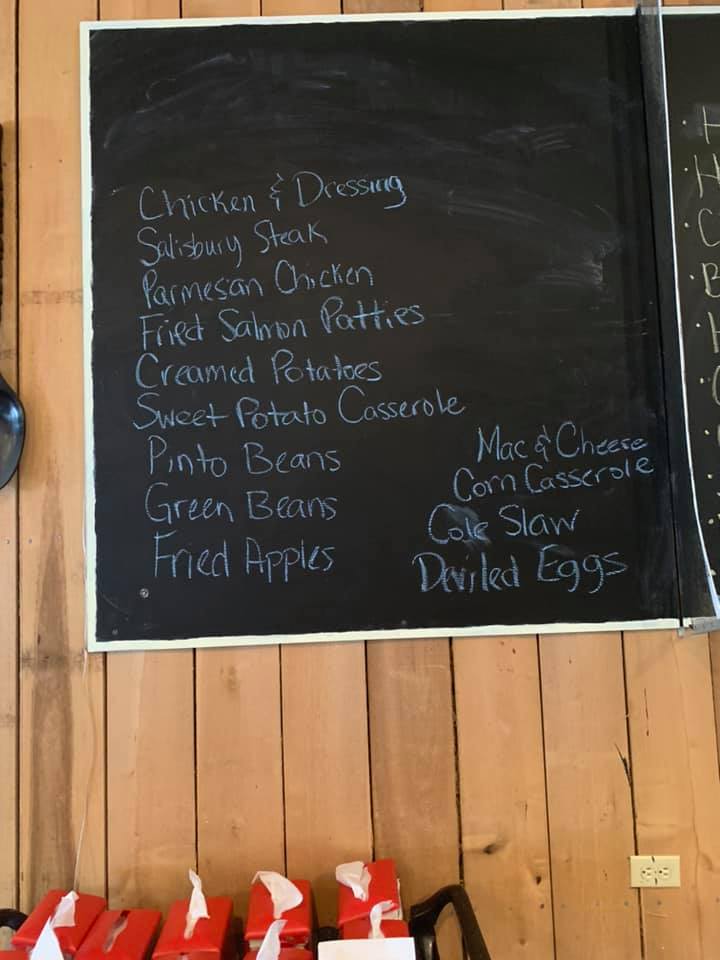 Chicken & Dressing
Salisbury Steak
Parmesan Chicken
Fried Salmon Patties
Creamed Potatoes
Sweet Potato Casserole
Pinto Beans
Green Beans
Fried Apples
Mac & Cheese
Corn Casserole
Cole Slaw
Deviled Eggs